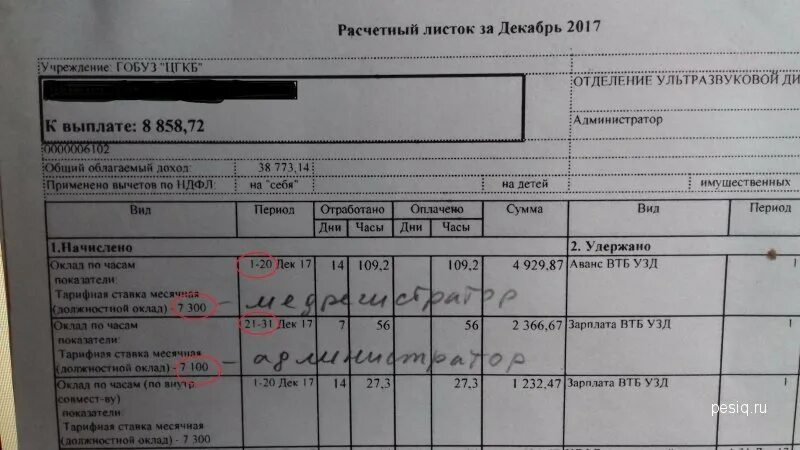 Расчетный листок за Декабрь 2017
Учреждение: ГОБУЗ "ЦГКБ"
К выплате: 8 858,72
ОТДЕЛЕНИЕ УЛЬТРАЗВУКОВОЙ ДИ
Администратор
0000006102
Общий облагаемый доход: 38 773,14
Применено вычетов по НДФЛ на "себя" на детей имущественных
Вид Период Отработано Оплачено Сумма Вид Период
Дни Часы Дни Часы
1.Начислено 2. Удержано
Оклад по часам 1-20 Дек 17 14 109,2 109,2 4 929,87 Аванс ВТБ УЗД
показатели:
Тарифная ставка месячная
(должностной оклад) - 7 300 - медрегистратор
Оклад по часам 21-31 Дек 17 7 56 56 2 366,67 Зарплата ВТБ УЗД
показатели:
Тарифная ставка месячная
(должностной оклад) - 7 100 - администратор
Оклад по часам (по внутр. 1-20 Дек 17 14 27,3 27,3 1 232,47 Зарплата ВТБ УЗД
совмест-ву)
показатели:
Тарифная ставка месячная
(должностной оклад) - 7 300
pesiq.ru